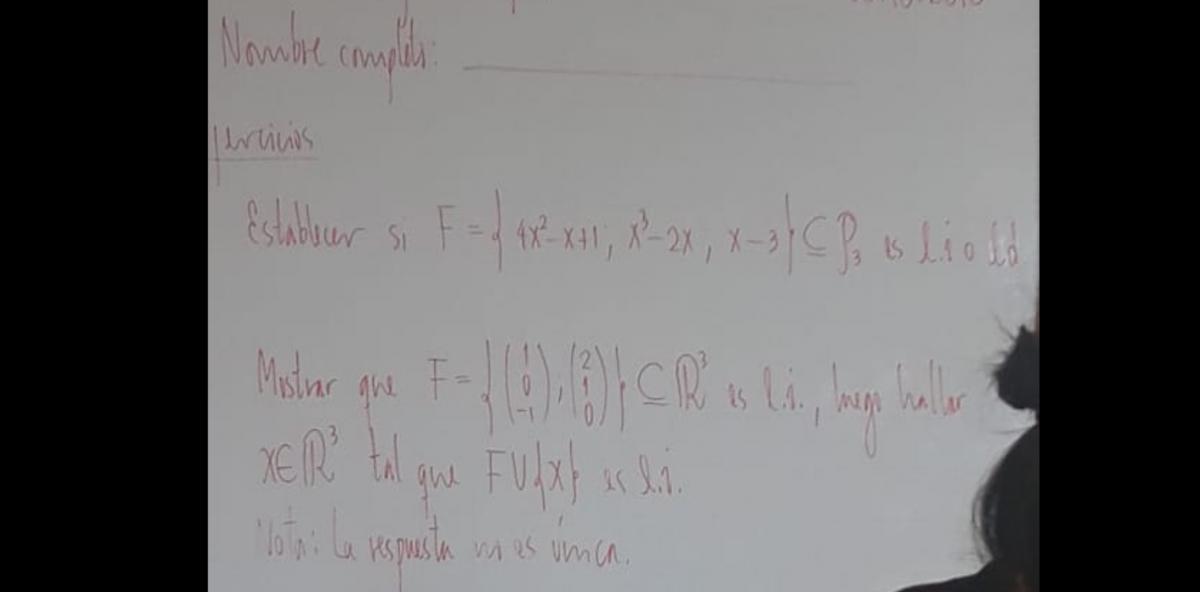 Nombre completo:
jercicios
Establecer si F = { 4x²-x+1, x³-2x, x-3 } ⊆ P₃ es l.i o l.d
Mostrar que F = { (1 0 -1), (2 1 0) } ⊆ ℝ³ es l.i., luego hallar
x∈ℝ³ tal que F∪{x} es l.i.
Nota: La respuesta no es única.